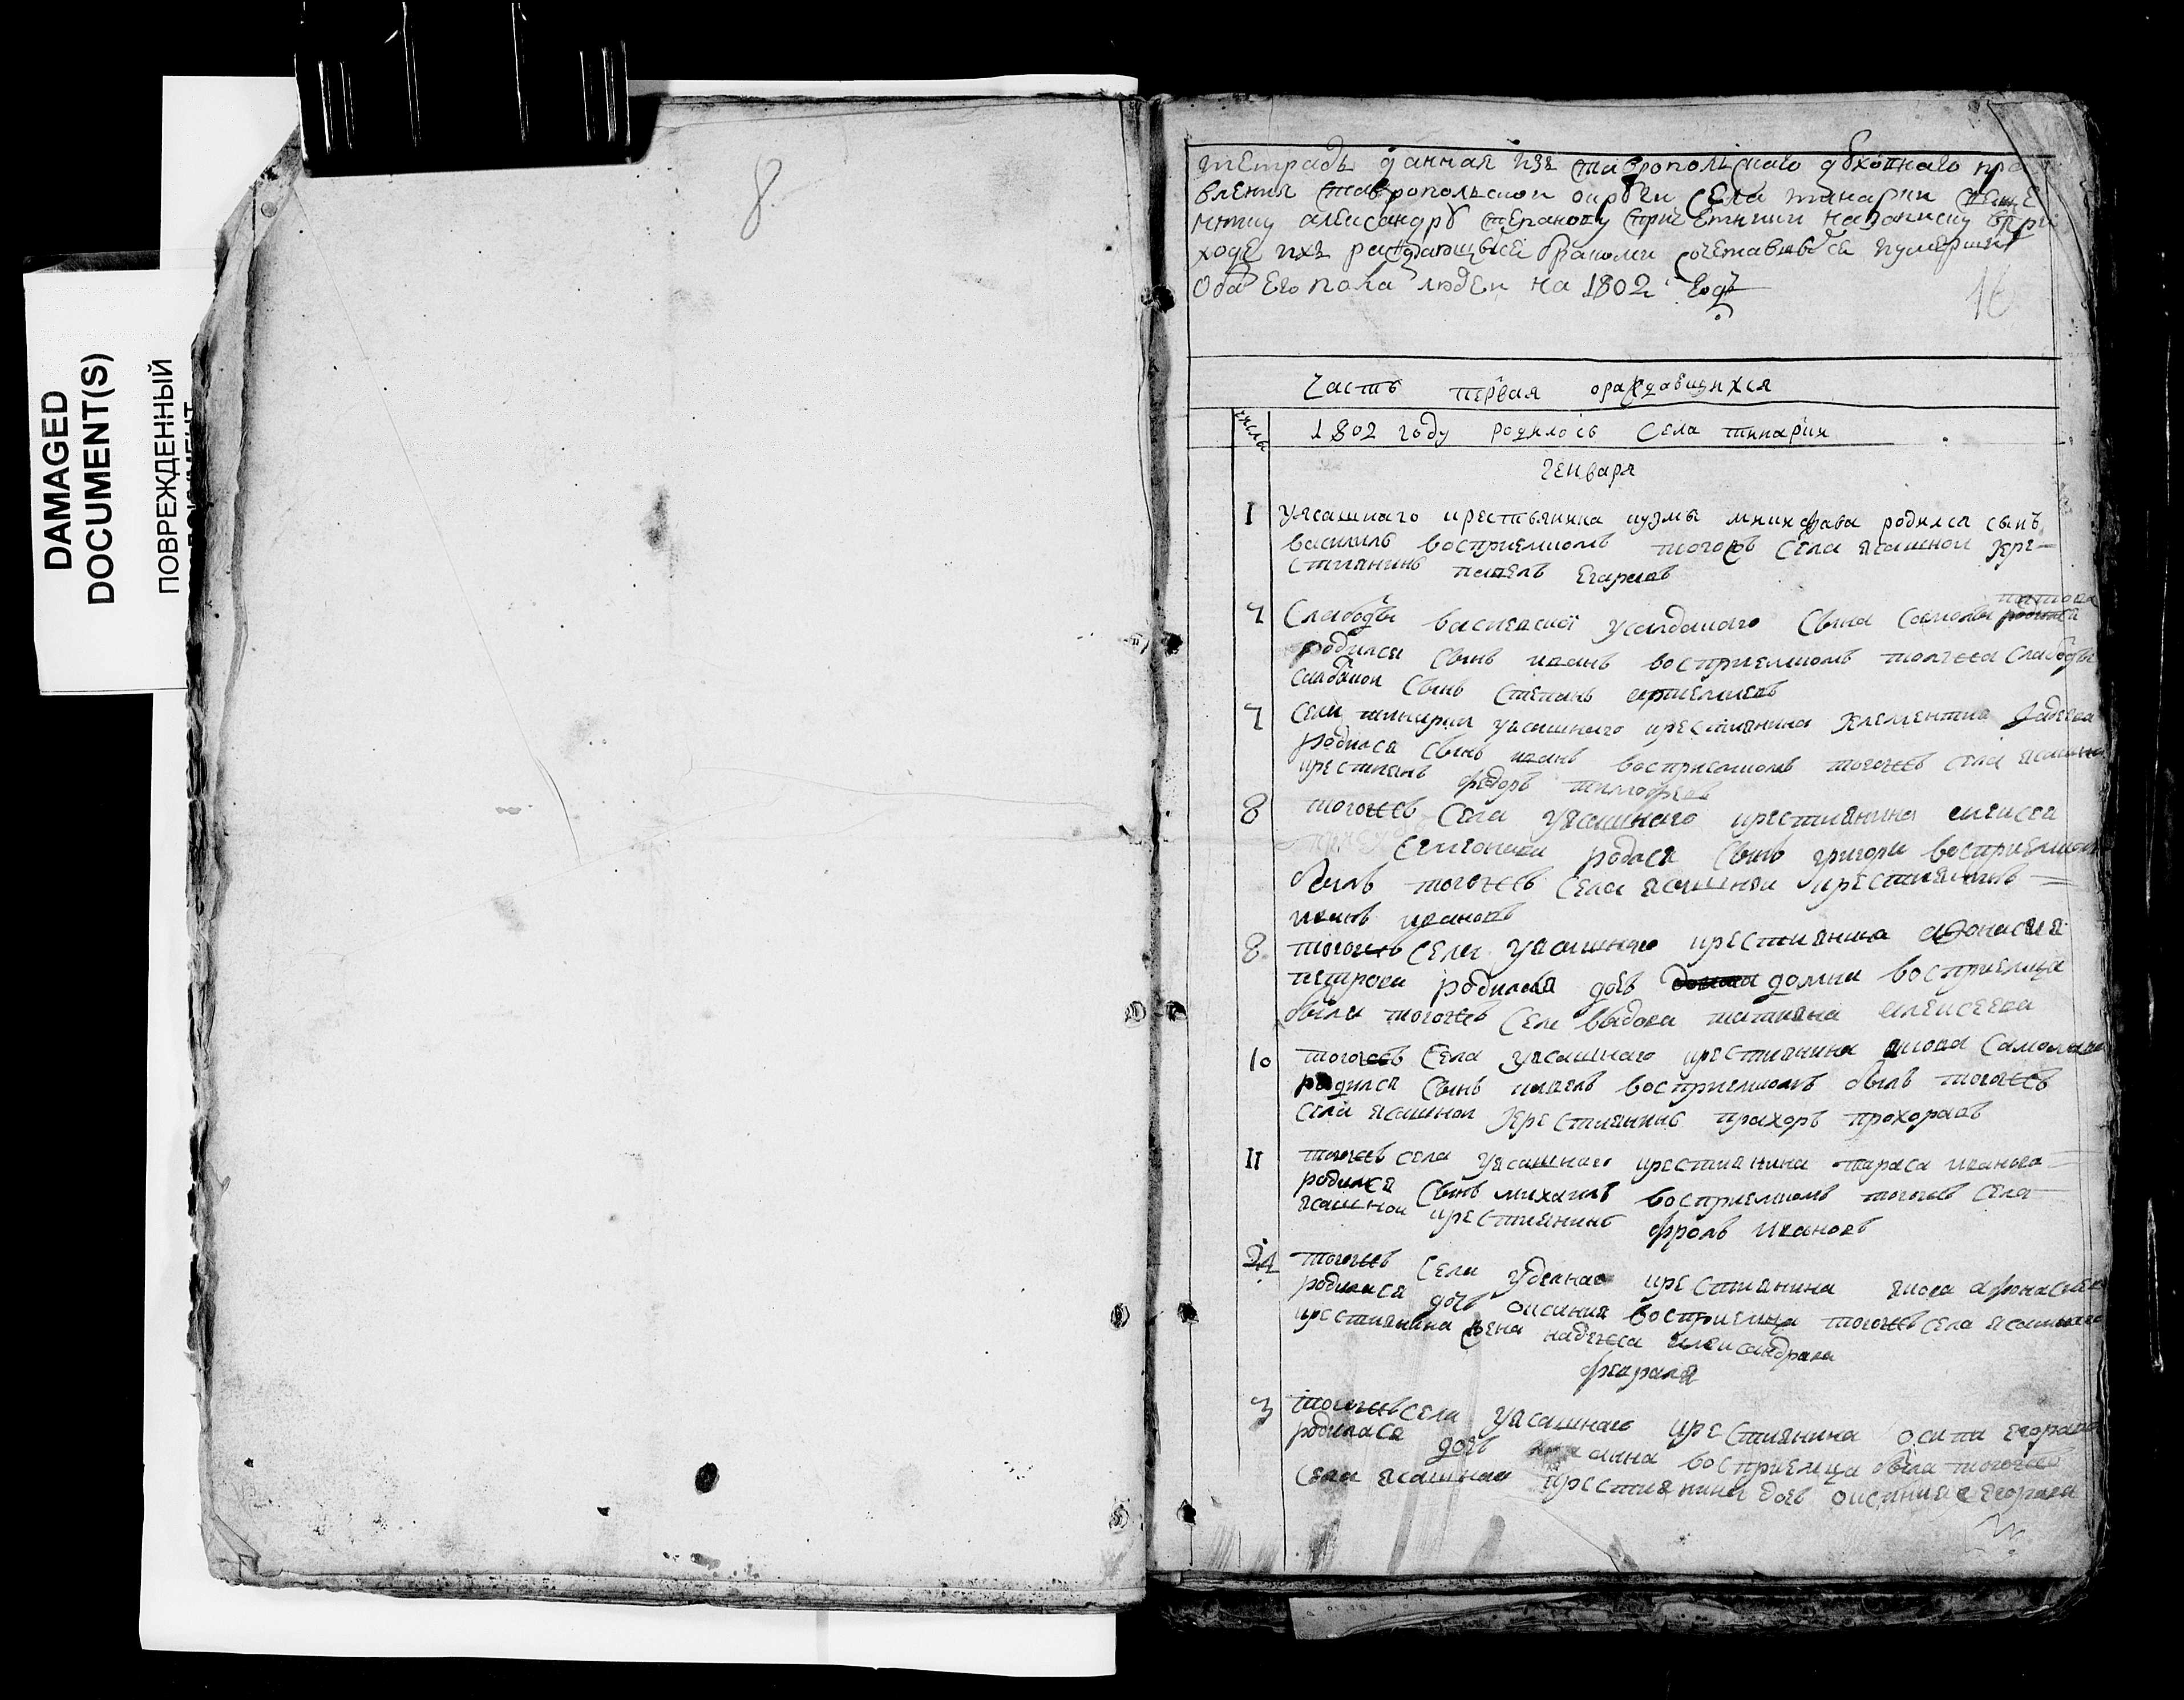 DAMAGED
DOCUMENT(S)
ПОВРЕЖДЕННЫЙ
8
тетрадь данная изъ ставрополскаго духовнаго пра
вления ставрополской округи села тинарки свяще
ннику александру степанову спричетники назаписку впри
ходе ихъ
обоего пола людеи на 1802 годъ
16
Часть первая ораждавшихся
числы
1802 году родилось Села тинарки
генваря
1 уясашнаго крестьянина кузмы никифрава родился сынъ
василиъ восприемникомъ тогожъ села ясашнои кре-
стиянинъ павелъ егаравъ
7 Слабоды василевскои усалдацкаго сына
родился сынъ иванъ восприемникомъ тояжеа слабоды
салдацкои сынъ степанъ артемиевъ
7 села тинарки уясашнаго крестиянина клементиа фадеева
родился сынъ иванъ восприемникомъ тогожеъ села ясашнои
крестиянъ федоръ тимофеевъ
8 тогожеъ села уясашнаго крестиянина алексеа
семионова родился сынъ григори восприемникомъ
былъ тогожеъ села ясашнои крестиянинъ
иванъ ивановъ
8 тогожеъ села уясашнаго крестиянина афонасия
петрова родилася дочь домна восприемница
была тогожеъ села вьдова татияна алексеева
10 тогожеъ села уясашнаго крестиянина якова самоилова
родился сынъ павелъ восприемникомъ былъ тогожеъ
села ясашнои крестиянинъ прахоръ прохоравъ
11 тогожеъ села уясашнаго крестиянина тараса иванова
родился сынъ михаилъ восприемникомъ тогожеъ села
ясашнои крестиянинъ фролъ ивановъ
24 тогожеъ села уделнаго крестиянина якова афонасиева
родилася дочь оксиния восприемница тогожеъ села ясашнаго
крестиянина жена надежеа александрава
февраля
3 тогожеъ села уясашнаго крестиянина осипа егорава
родилася дочь восприемница была тогожеъ
села ясашнаи крестиянина дочь оксиниа егорава